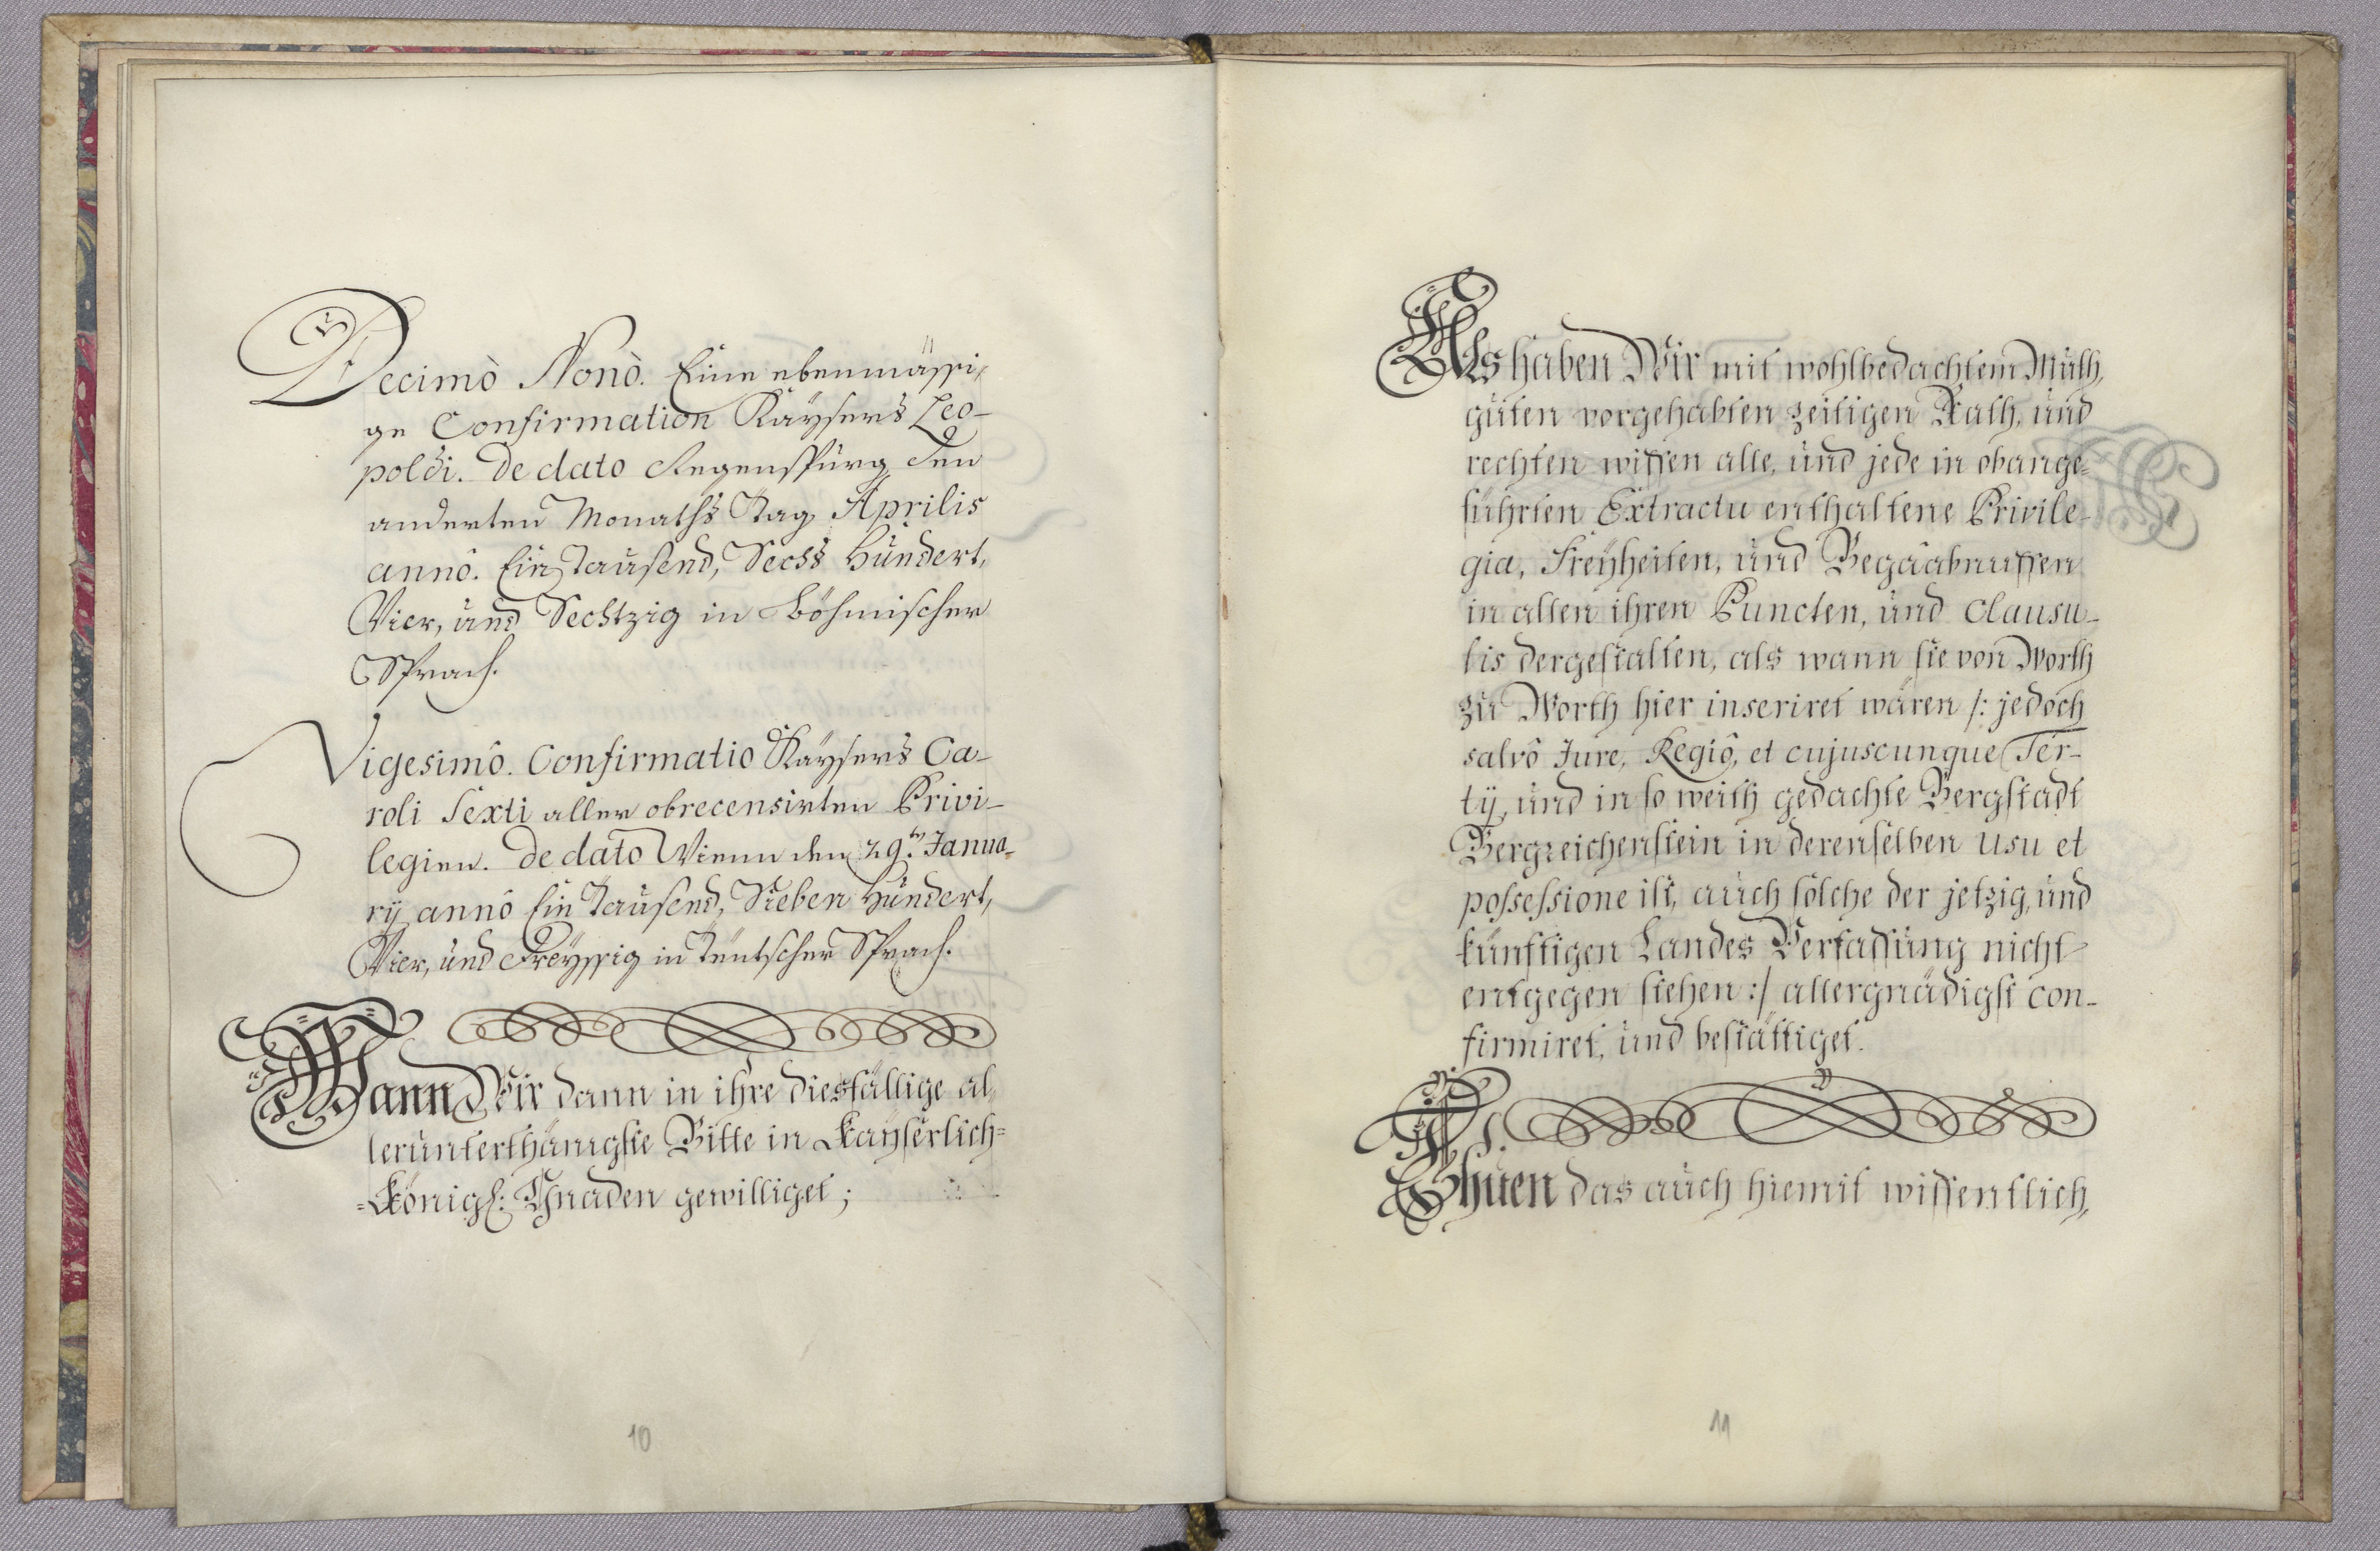 Decimò Nonò. Eine ebenmässi-
ge Confirmation Kaÿsers Leo-
poldi. De dato Regenspurg den
anderten Monaths Tag Aprilis
annô. Ein Tausend, Sechs Hundert,
Vier, und Sechtzig in Böhmischer
Sprach.
Vigesimô. Confirmatio Kaÿsers Ca-
roli Sexti aller obrecensirten Privi-
legien. De dato Wienn den 29.ten Janua-
rÿ annô Ein Tausend, Sieben Hundert,
Vier, und Dreÿssig in Teutscher Sprach.
Wann Wir dann in ihre diesfällige al-
lerunterthänigste Bitte in Kaÿserlich-
-Königl: Gnaden gewilliget;
10
Als haben Wir mit wohlbedachtem Muth,
guten vorgehabten zeitigen Rath, und
rechten wissen alle, und jede in obange-
führten Extractu enthaltene Privile-
gia, Freÿheiten, und Begaabnussen
in allen ihren Puncten, und Clausu-
lis dergestalten, als wann sie von Worth
zu Worth hier inseriret wären /: jedoch
salvô Jure, Regiô, et cujuscunque Ter-
tÿ, und in so weith gedachte Bergstadt
Bergreichenstein in derenselben usu et
possessione ist, auch solche der jetzig, und
künftigen Landes Verfassung nicht
entgegen stehen :/ allergnädigst con-
firmiret, und bestättiget.
Thuen das auch hiemit wissentlich,
11